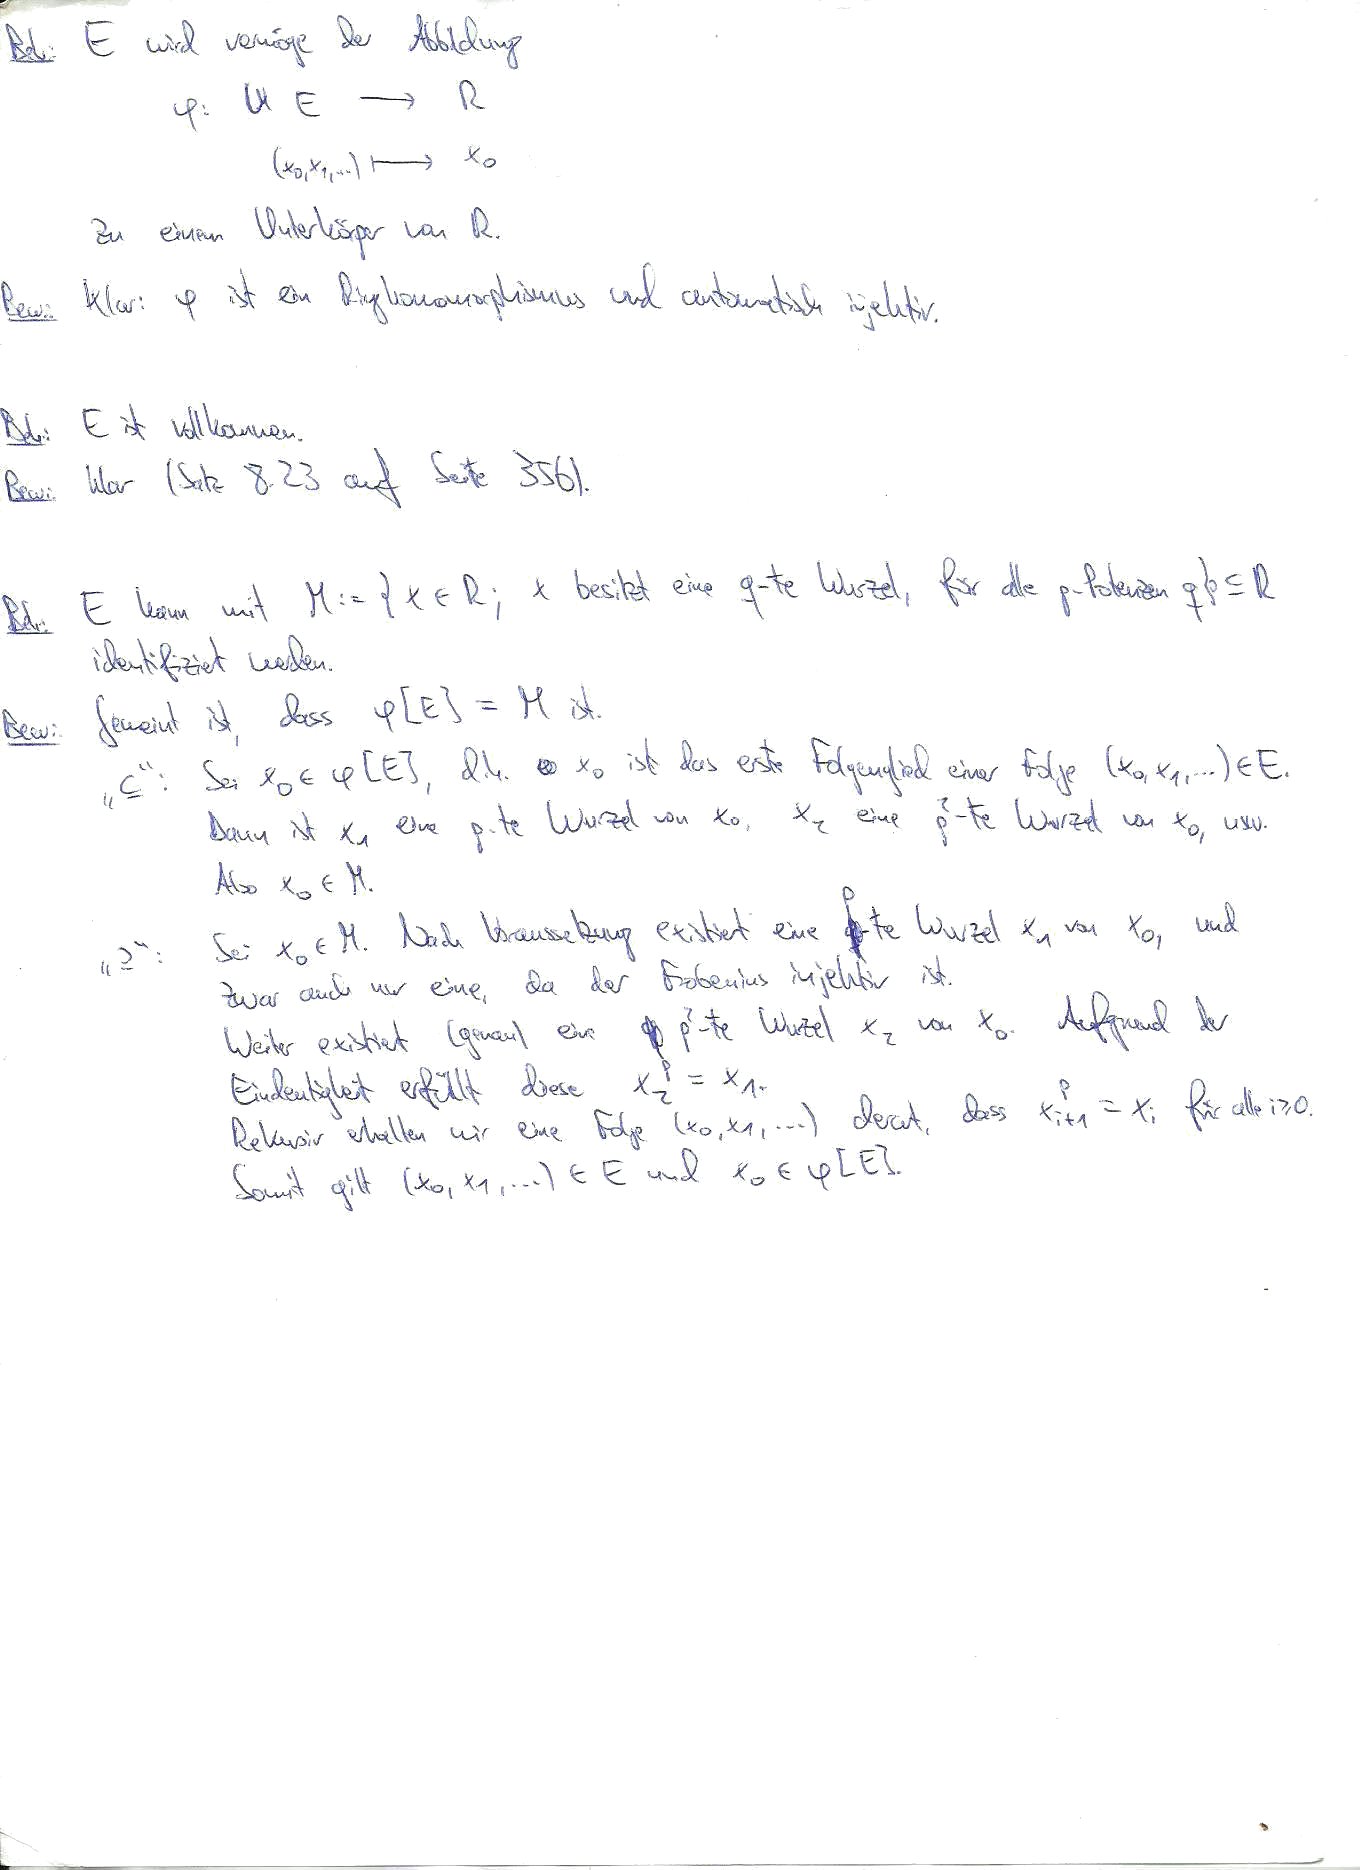 Beh: E wird vermöge der Abbildung
φ: E ⟶ R
(x₀,x₁,...) ⟼ x₀
zu einem Unterkörper von R.
Bew: Klar: φ ist ein Ringhomomorphismus und automatisch injektiv.
Beh: E ist vollkommen.
Bew: klar (Satz 8.23 auf Seite 356).
Beh: E kann mit M := {x ∈ R; x besitzt eine q-te Wurzel, für alle p-Potenzen q} ⊆ R
identifiziert werden.
Bew: Gemeint ist, dass φ[E] = M ist.
„⊆“: Sei x₀ ∈ φ[E], d.h. x₀ ist das erste Folgenglied einer Folge (x₀,x₁,...) ∈ E.
Dann ist x₁ eine p-te Wurzel von x₀, x₂ eine p²-te Wurzel von x₀, usw.
Also x₀ ∈ M.
„⊇“: Sei x₀ ∈ M. Nach Voraussetzung existiert eine p-te Wurzel x₁ von x₀, und
zwar auch nur eine, da der Frobenius injektiv ist.
Weiter existiert (genau) eine p²-te Wurzel x₂ von x₀. Aufgrund der
Eindeutigkeit erfüllt diese x₂ᵖ = x₁.
Rekursiv erhalten wir eine Folge (x₀,x₁,...) derart, dass xᵢ₊₁ᵖ = xᵢ für alle i≥0.
Somit gilt (x₀,x₁,...) ∈ E und x₀ ∈ φ[E].